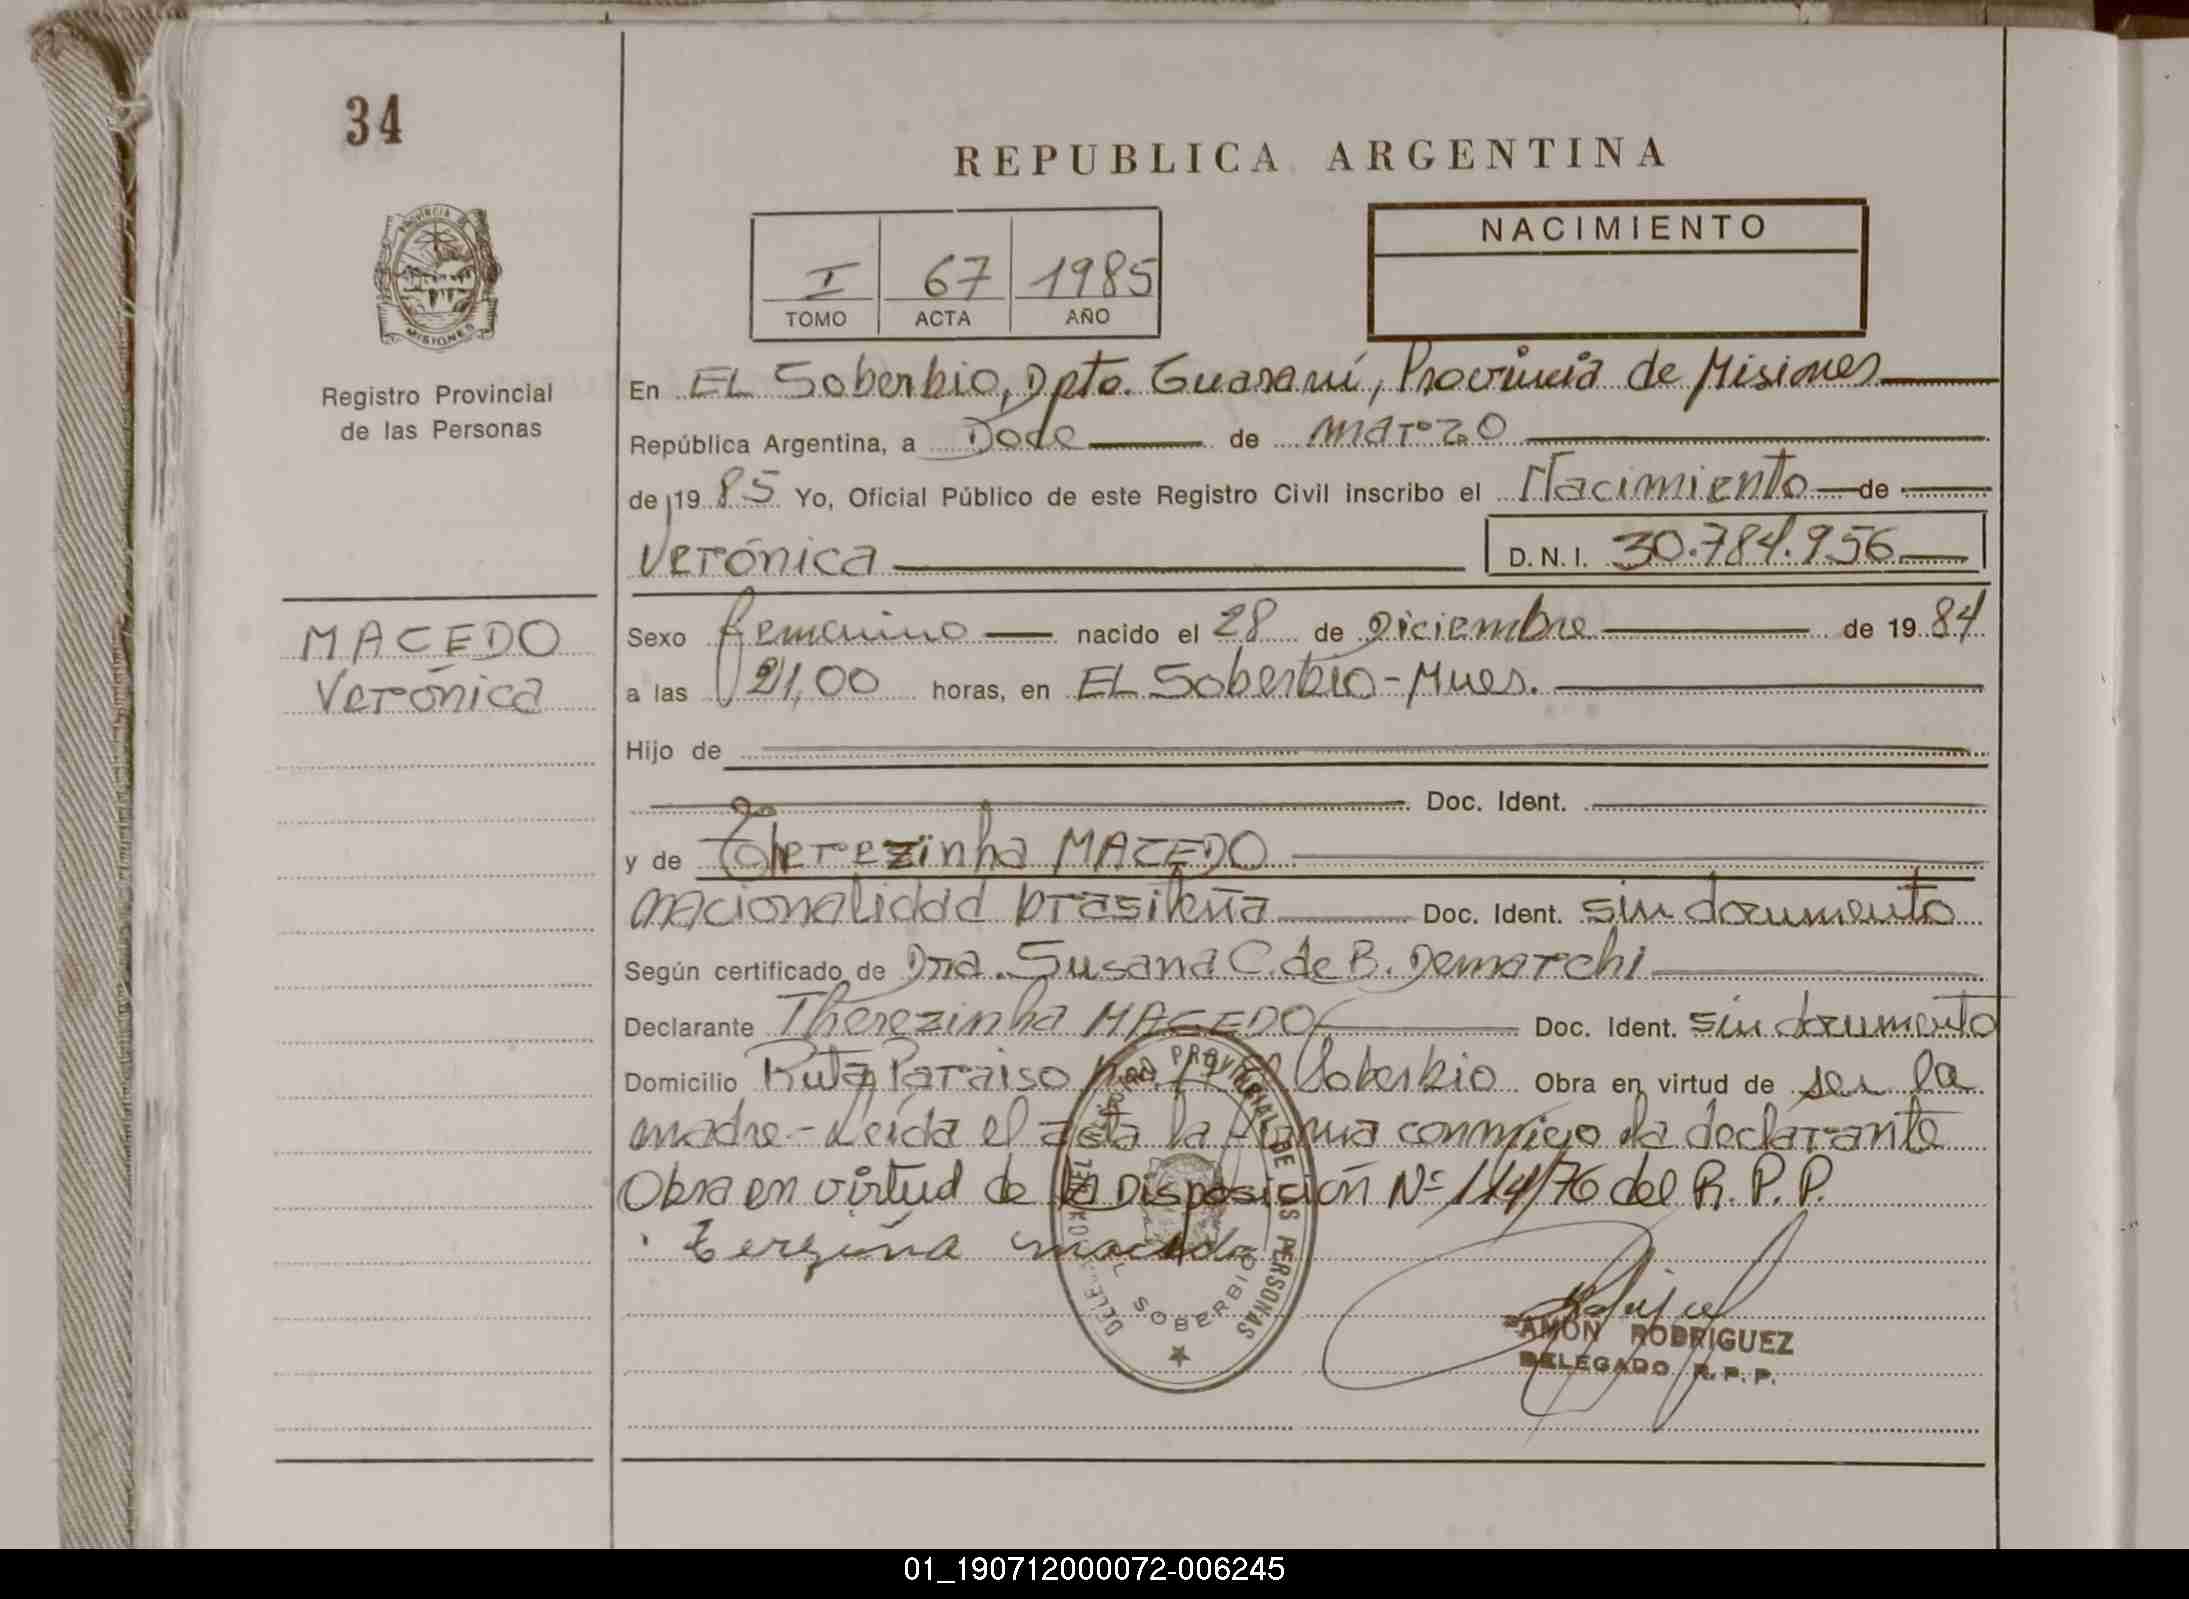 34
REPUBLICA ARGENTINA
PROVINCIA DE
MISIONES
I 67 1985
TOMO ACTA AÑO
NACIMIENTO
Registro Provincial
de las Personas
En EL Soberbio, Dpto. Guaraní, Provincia de Misiones
República Argentina, a Doce de marzo
de 1985 Yo, Oficial Público de este Registro Civil inscribo el Nacimiento de
Verónica D.N.I. 30.784.956
MACEDO
Verónica
Sexo femenino nacido el 28 de Diciembre de 1984
a las 21,00 horas, en EL Soberbio - Mnes.
Hijo de
Doc. Ident.
y de Therezinha MACEDO
nacionalidad brasileña Doc. Ident. sin documento
Según certificado de Dra. Susana C. de B. Demarchi
Declarante Therezinha MACEDO Doc. Ident. sin documento
Domicilio Ruta Paraiso El Soberbio Obra en virtud de ser la
madre - Leída el acta la firma conmigo la declarante
Obra en virtud de la Disposición Nº 114/76 del R.P.P.
terezina macedo
REGISTRO PROVINCIAL DE LAS PERSONAS
DELEGACION
EL SOBERBIO
RAMON RODRIGUEZ
DELEGADO R.P.P.
01_190712000072-006245